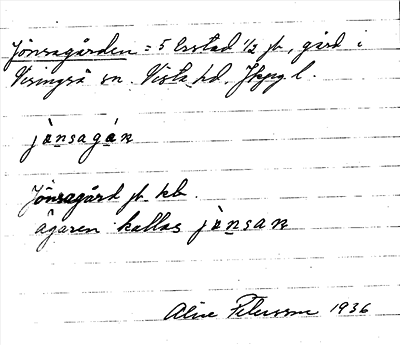 Jönsagården = 5 Erstad 1/2 jb, gård i
Visingsö sn. Vista hd. Jkpg l.
jònsagáʀ
Jönsagård jb kb.
ägaren kallas jònsaʀ
Aline Petersson 1936